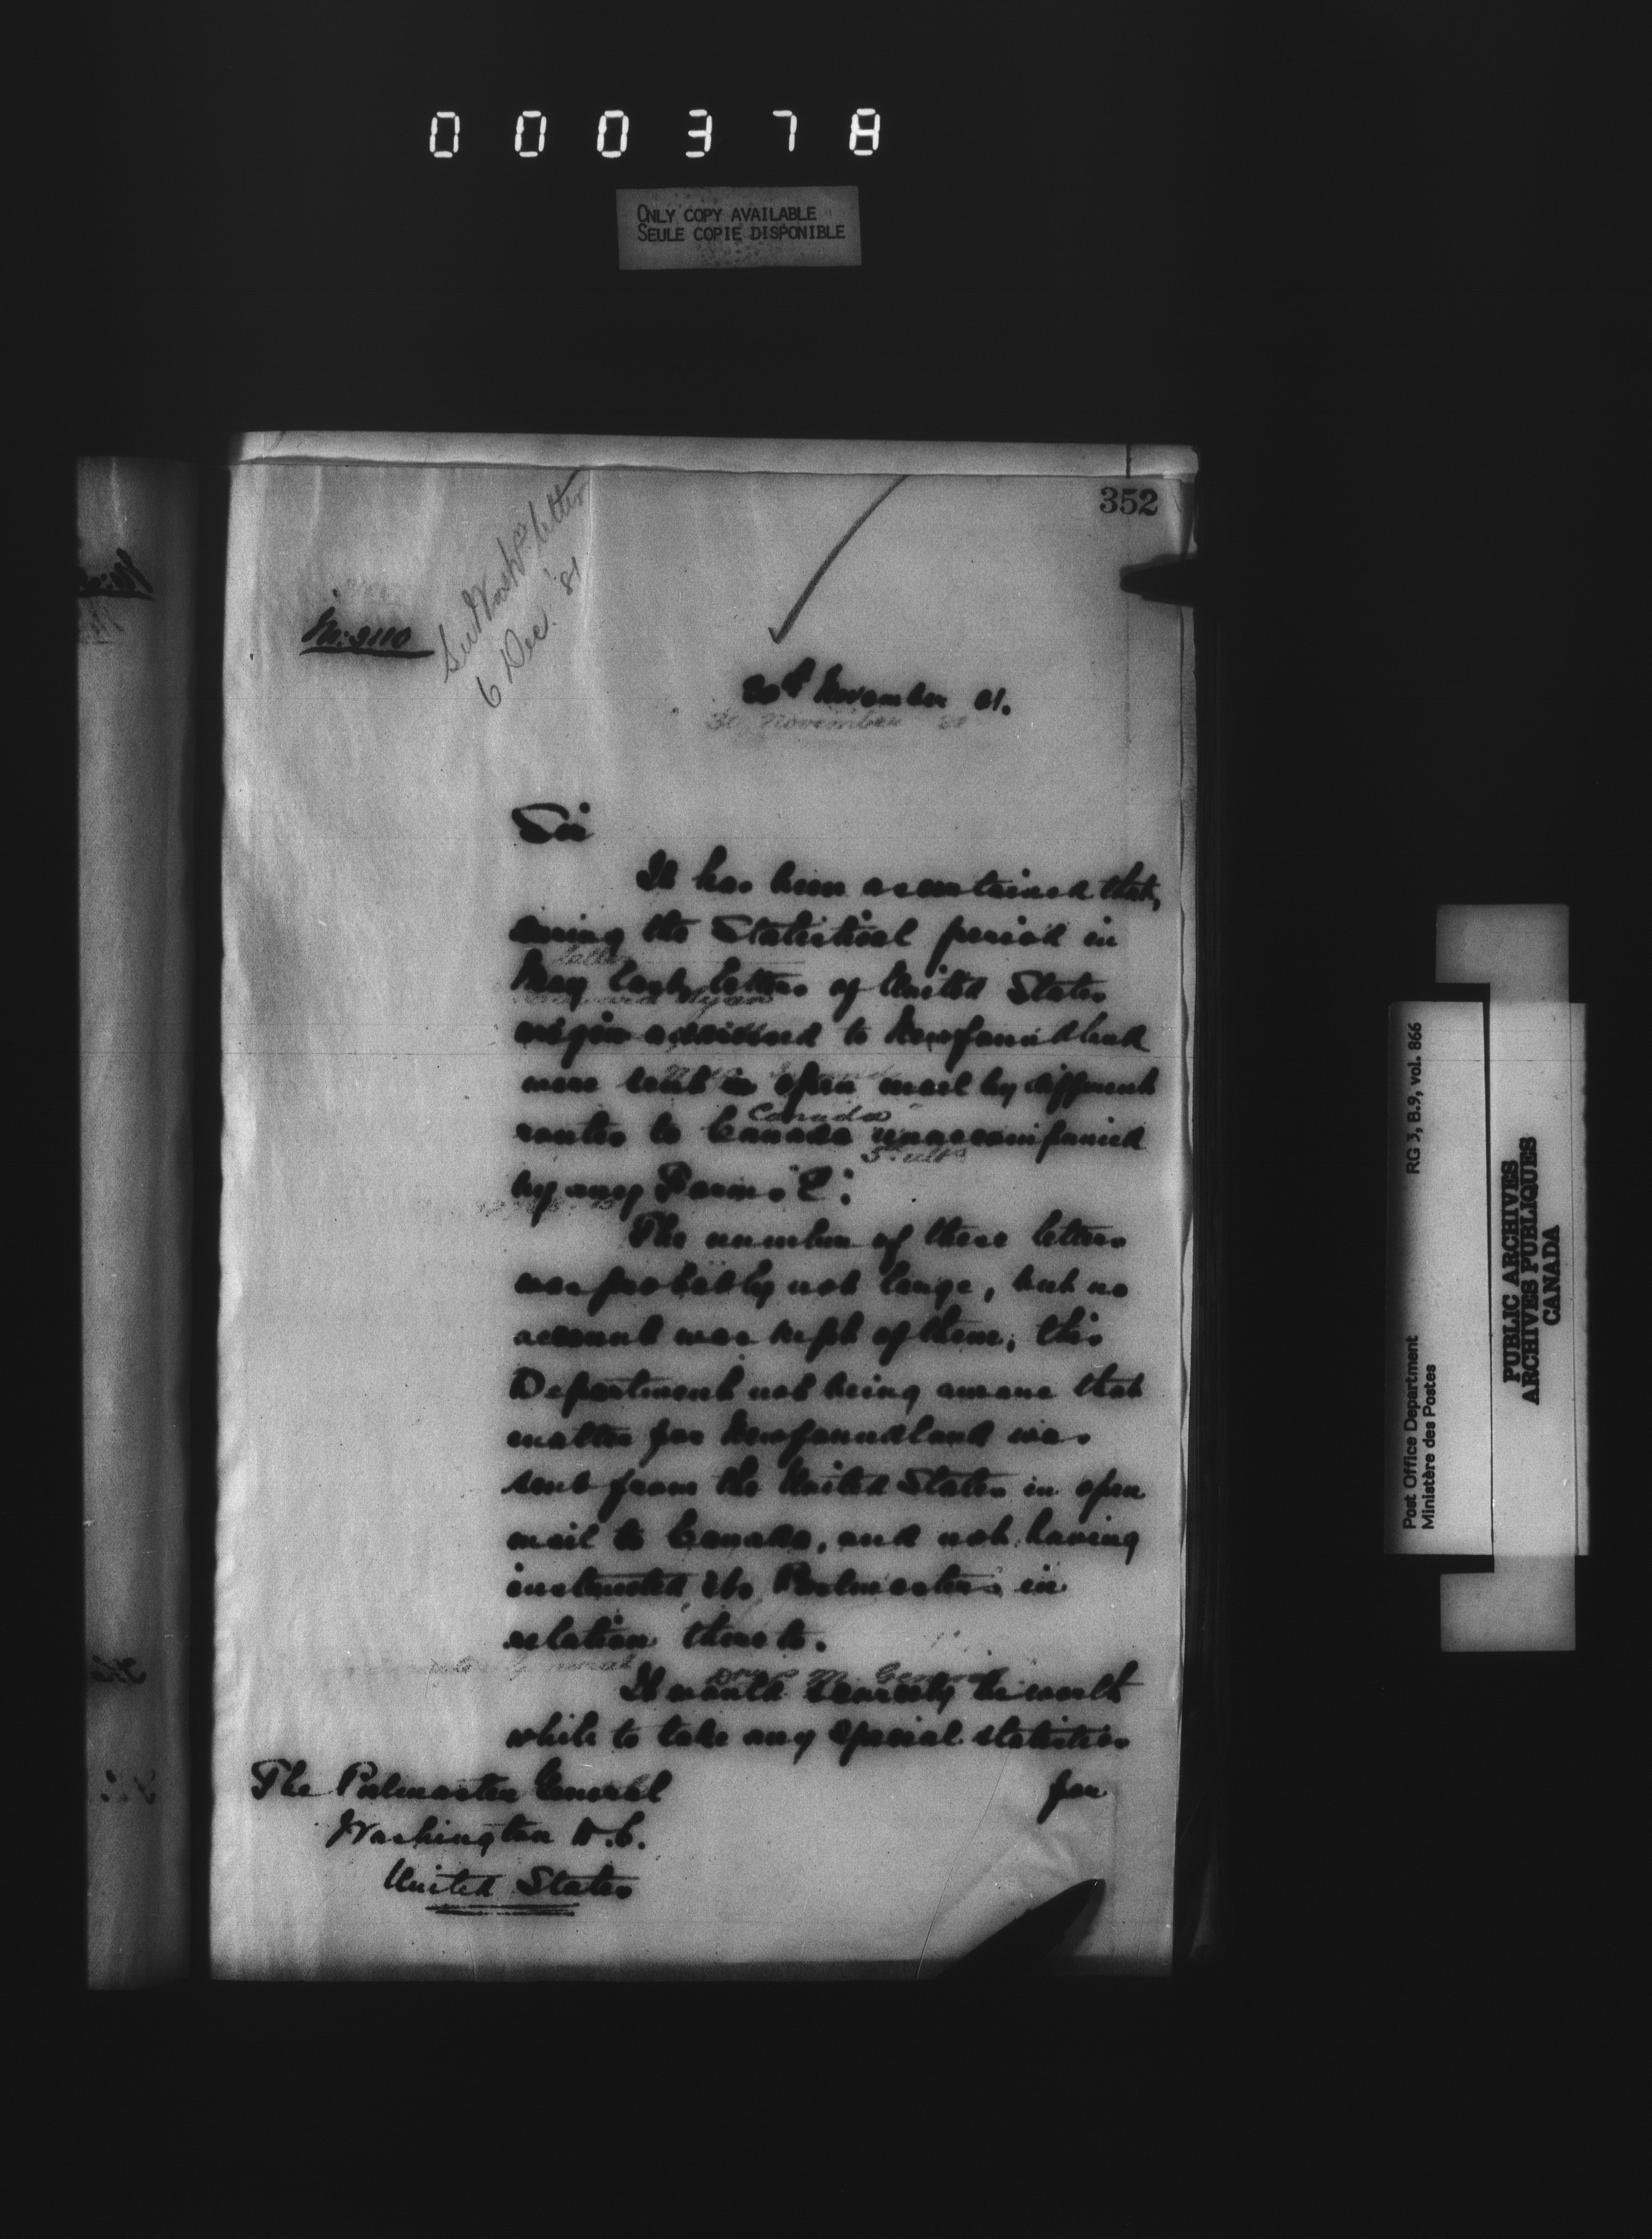 000378
ONLY COPY AVAILABLE
SEULE COPIE DISPONIBLE
352
letter
6 Dec. '81
No: 2110
30th November 81.
30 November
Sir
It has been ascertained that,
during the Statistical period in
May last, letters of United States
origin addressed to Newfoundland
were sent in open mail by different
routes to Canada unaccompanied
by any Form
The number of these letters
was probably not large, but no
account was kept of them; this
Department not being aware that
matter for Newfoundland was
sent from the United States in open
mail to Canada, and not having
instructed its Postmasters in
relation thereto.
It would scarcely be worth
while to take any special statistics
for
The Postmaster General
Washington D.C.
United States
Canada
RG 3, B.9, vol. 866
Post Office Department
Ministère des Postes
PUBLIC ARCHIVES
ARCHIVES PUBLIQUES
CANADA